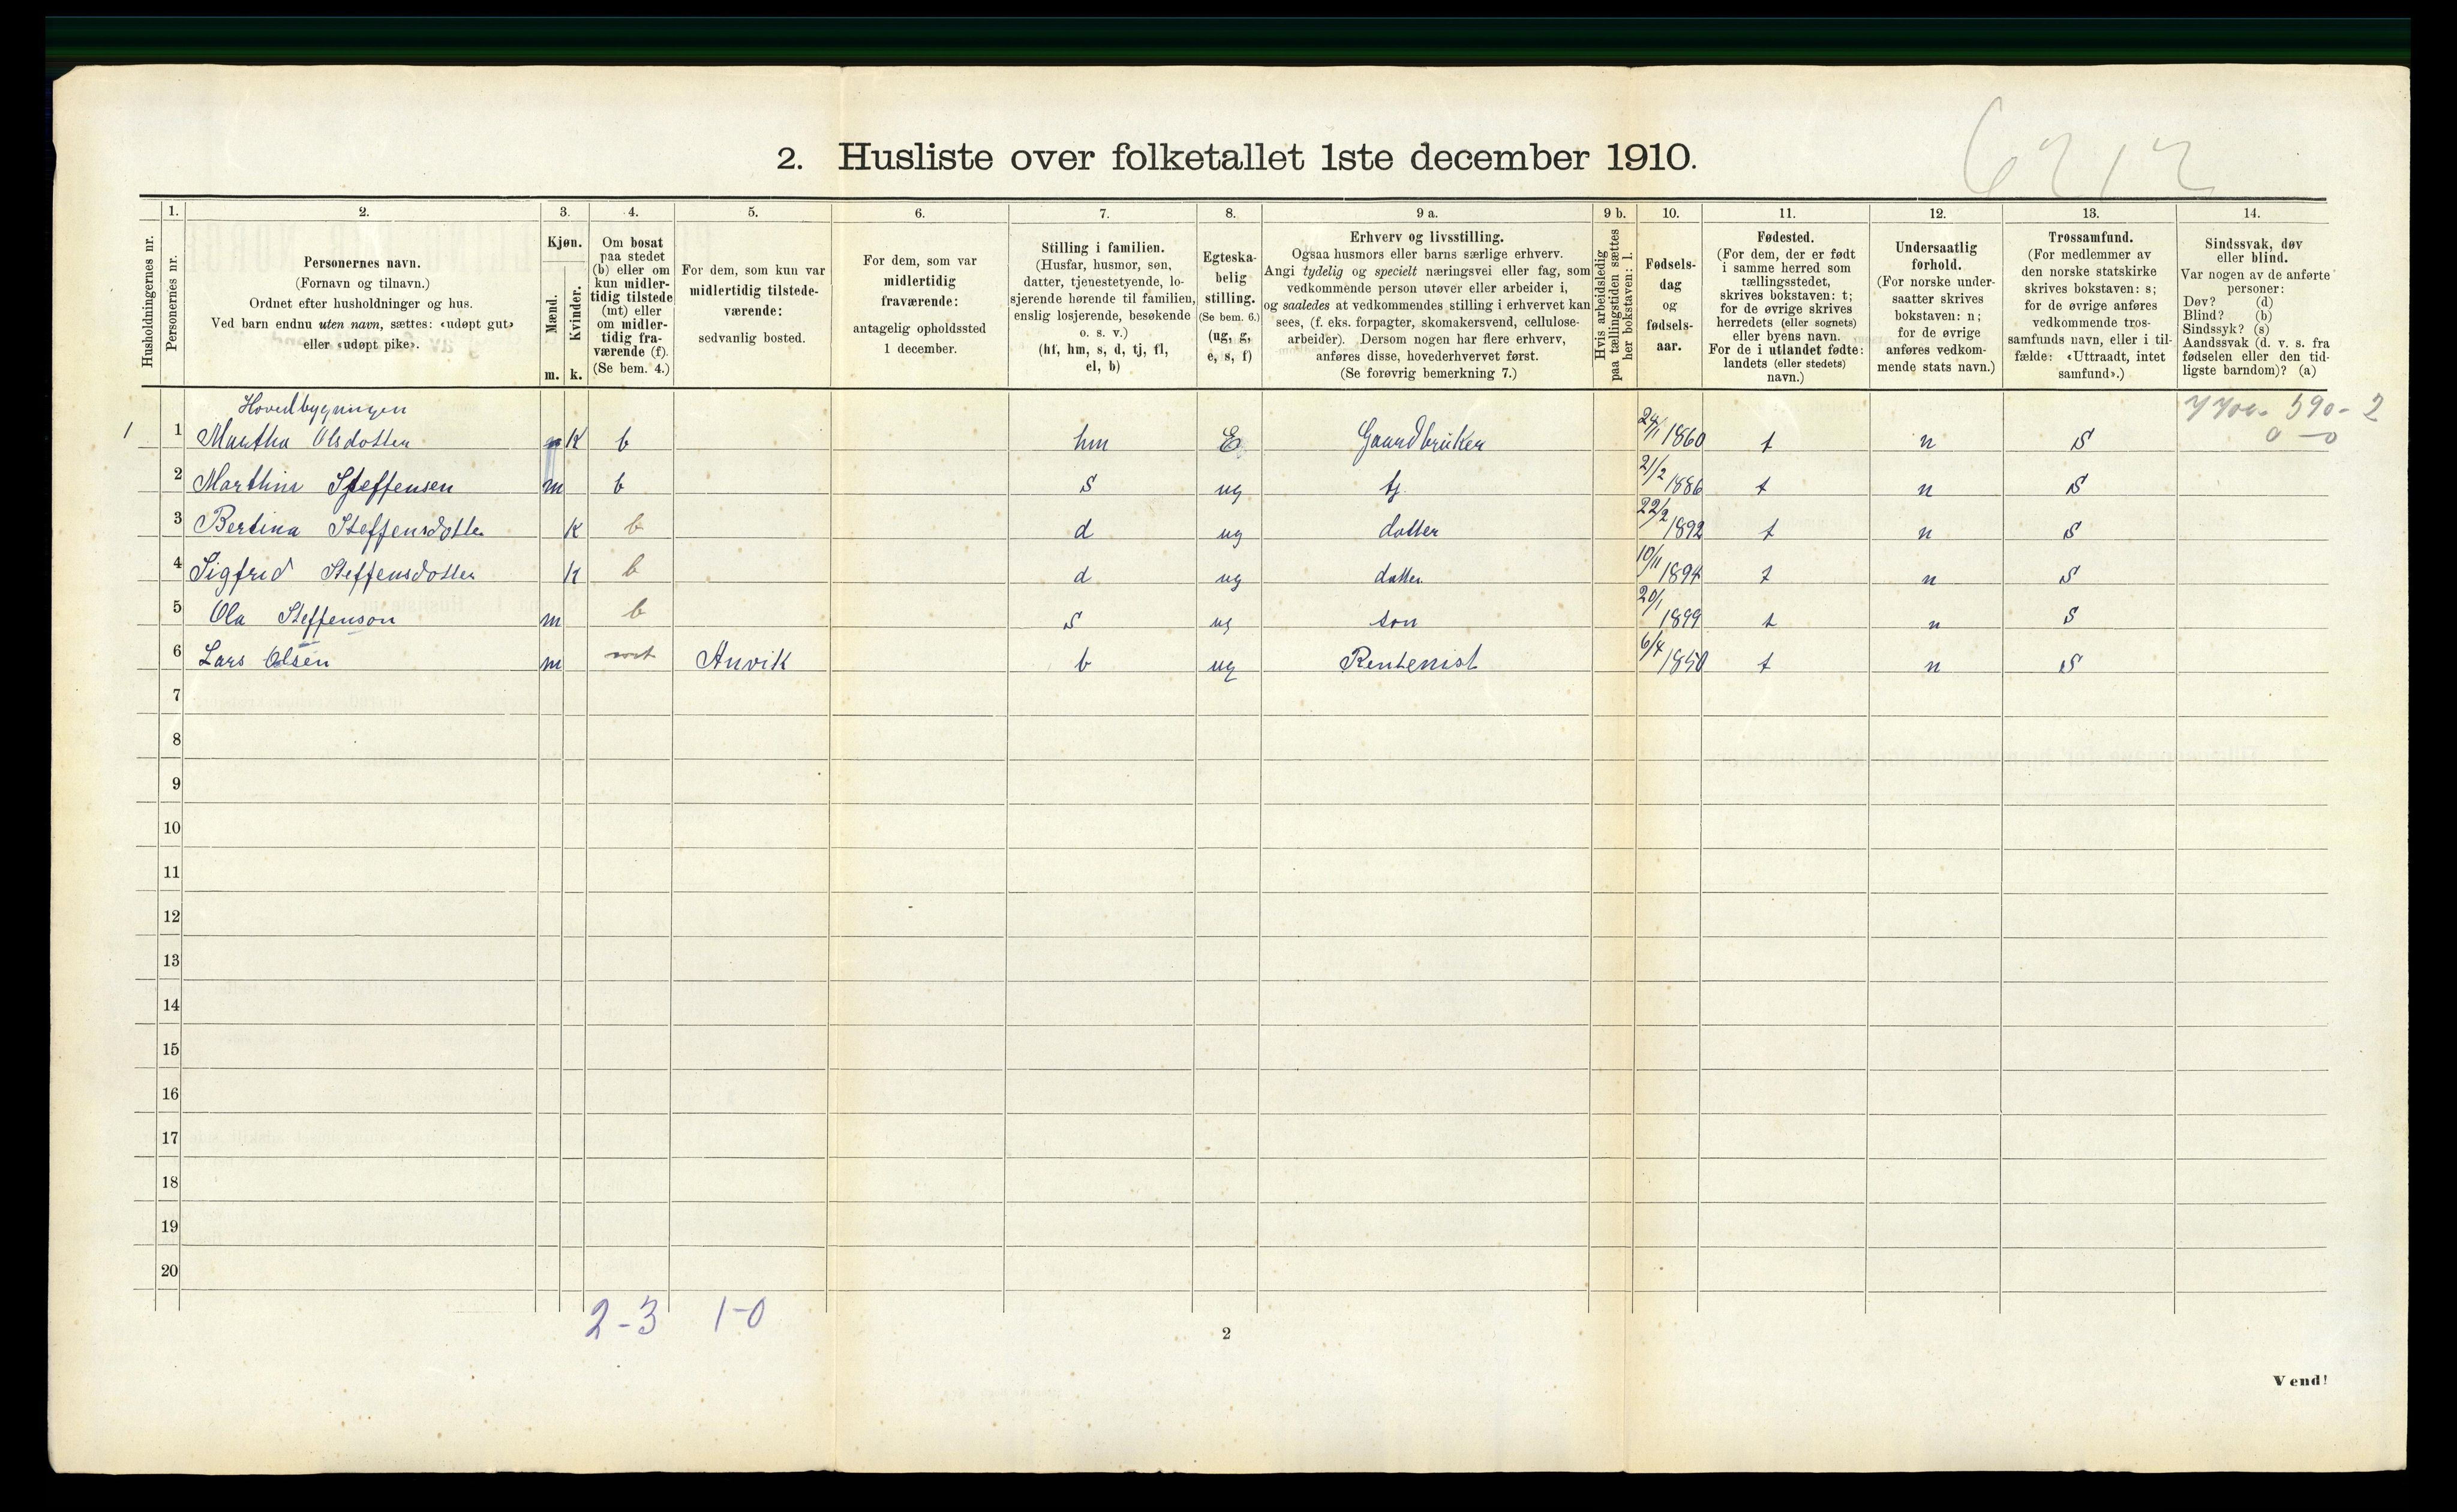 6212
2. Husliste over folketallet 1ste december 1910.
Husholdningernes nr.
1.
Personernes nr.
2.
Personernes navn.
(Fornavn og tilnavn.)
Ordnet efter husholdninger og hus.
Ved barn endnu uten navn, sættes: «udøpt gut»
eller «udøpt pike».
3.
Kjøn.
Mænd.
Kvinder.
m. k.
4.
Om bosat
paa stedet
(b) eller om
kun midler-
tidig tilstede
(mt) eller
om midler-
tidig fra-
værende (f).
(Se bem. 4.)
5.
For dem, som kun var
midlertidig tilstede-
værende:
sedvanlig bosted.
6.
For dem, som var
midlertidig
fraværende:
antagelig opholdssted
1 december.
7.
Stilling i familien.
(Husfar, husmor, søn,
datter, tjenestetyende, lo-
sjerende hørende til familien,
enslig losjerende, besøkende
o. s. v.)
(hf, hm, s, d, tj, fl,
el, b)
8.
Egteska-
belig
stilling.
(Se bem. 6.)
(ug, g,
e, s, f)
9 a.
Erhverv og livsstilling.
Ogsaa husmors eller barns særlige erhverv.
Angi tydelig og specielt næringsvei eller fag, som
vedkommende person utøver eller arbeider i,
og saaledes at vedkommendes stilling i erhvervet kan
sees, (f. eks. forpagter, skomakersvend, cellulose-
arbeider). Dersom nogen har flere erhverv,
anføres disse, hovederhvervet først.
(Se forøvrig bemerkning 7.)
9 b.
Hvis arbeidsledig
paa tællingstiden sættes
her bokstaven: l.
10.
Fødsels-
dag
og
fødsels-
aar.
11.
Fødested.
(For dem, der er født
i samme herred som
tællingsstedet,
skrives bokstaven: t;
for de øvrige skrives
herredets (eller sognets)
eller byens navn.
For de i utlandet fødte:
landets (eller stedets)
navn.)
12.
Undersaatlig
forhold.
(For norske under-
saatter skrives
bokstaven: n;
for de øvrige
anføres vedkom-
mende stats navn.)
13.
Trossamfund.
(For medlemmer av
den norske statskirke
skrives bokstaven: s;
for de øvrige anføres
vedkommende tros-
samfunds navn, eller i til-
fælde: «Uttraadt, intet
samfund».)
14.
Sindssvak, døv
eller blind.
Var nogen av de anførte
personer:
Døv? (d)
Blind? (b)
Sindssyk? (s)
Aandssvak (d. v. s. fra
fødselen eller den tid-
ligste barndom)? (a)
Hovedbygningen
590 - 2
0 - 0
1 1 Martha Olsdotter K b hm E Gaardbruker 24/11 1860 t n S
2 Marthin Steffensen m b S ug tj. 21/2 1886 t n S
3 Bertina Steffensdotter K b d ug datter 22/2 1892 t n S
4 Sigfrid Steffensdotter K b d ug datter 10/11 1894 t n S
5 Ola Steffenson m b S ug son 20/1 1899 t n S
6 Lars Olsen m mt Anvik b ug Rentenist 6/4 1850 t n S
7
8
9
10
11
12
13
14
15
16
17
18
19
20
2-3 1-0
2
Vend!